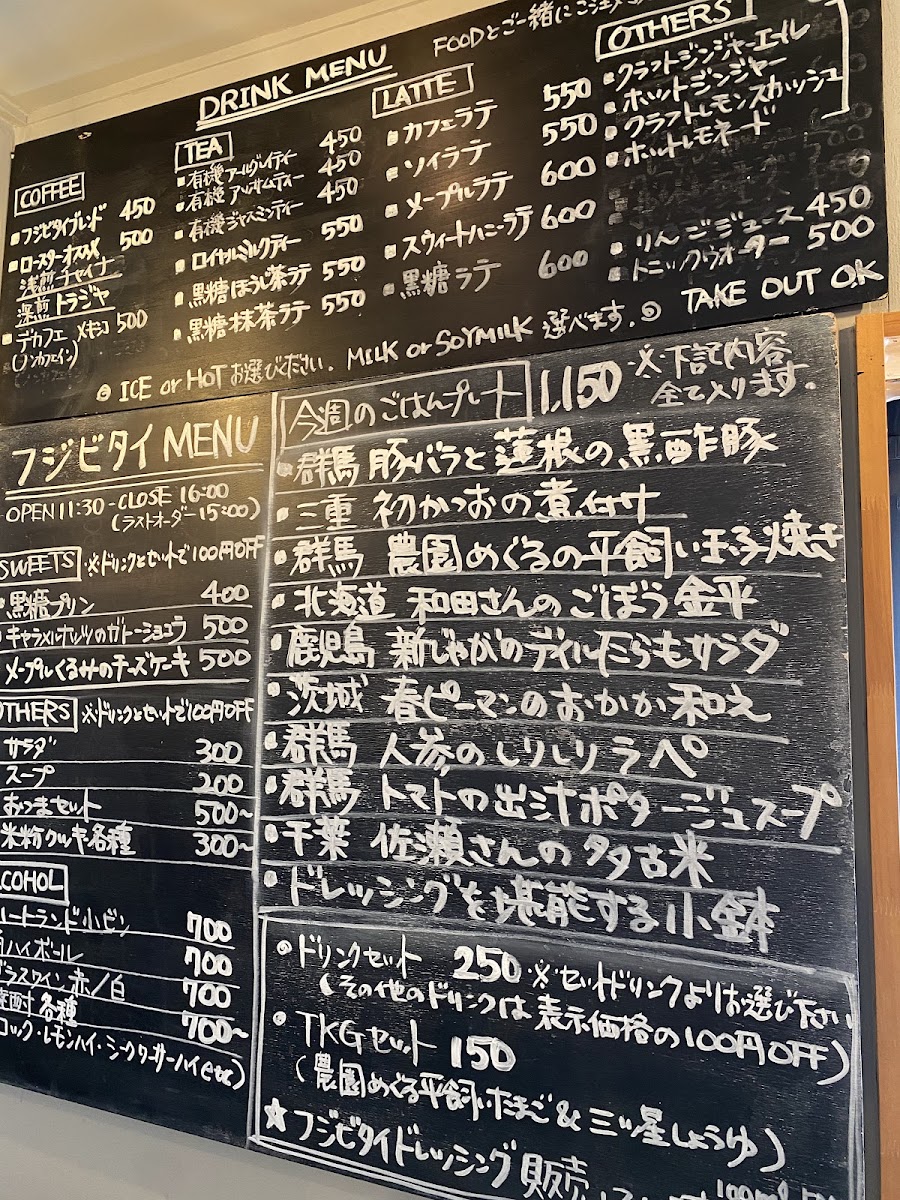 DRINK MENU
FOODとご一緒にご注文
COFFEE
フジビタイブレンド 450
ロースターオススメ 500
浅煎 チャイナ
深煎 トラジャ
デカフェ メキシコ 500
(ノンカフェイン)
TEA
有機アールグレイティー 450
有機アッサムティー 450
有機ジャスミンティー 450
ロイヤルミルクティー 550
黒糖ほうじ茶ラテ 550
黒糖抹茶ラテ 550
LATTE
カフェラテ 550
ソイラテ 550
メープルラテ 600
スウィートハニーラテ 600
黒糖ラテ 600
OTHERS
クラフトジンジャーエール
ホットジンジャー
クラフトレモンスカッシュ
ホットレモネード
りんごジュース 450
トニックウォーター 500
ICE or HOT お選びください。 MILK or SOYMILK 選べます。 TAKE OUT O.K
フジビタイ MENU
OPEN 11:30 - CLOSE 16:00
(ラストオーダー 15:00)
SWEETS ※ドリンクとセットで100円OFF
黒糖プリン 400
キャラメルナッツのガトーショコラ 500
メープルくるみのチーズケーキ 500
OTHERS ※ドリンクとセットで100円OFF
サラダ 300
スープ 200
おつまセット 500~
米粉クッキー各種 300~
COHOL
ハートランド小ビン 700
ハイボール 700
グラスワイン 赤/白 700
各種 700~
コック・レモンハイ・シークワーサーハイ etc)
今週のごはんプレート 1,150 ※下記内容
全て入ります。
群馬 豚バラと蓮根の黒酢豚
三重 初かつおの煮付け
群馬 農園めぐるの平飼い玉子焼き
北海道 和田さんのごぼう金平
鹿児島 新じゃがのディルたらもサラダ
茨城 春ピーマンのおかか和え
群馬 人参のしりしりラペ
群馬 トマトの出汁ポタージュスープ
千葉 佐瀬さんの多古米
ドレッシングを堪能する小鉢
ドリンクセット 250 ※セットドリンクよりお選び下さい
(その他のドリンクは表示価格の100円OFF)
TKGセット 150
(農園めぐる平飼いたまご & 三ツ星しょうゆ)
★フジビタイドレッシング販売